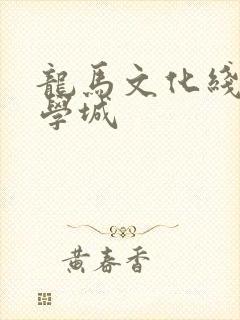 龍馬文化綫
學城
黃春香